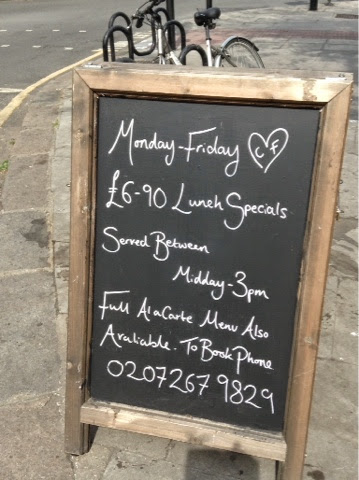 Monday-Friday CF
£6-90 Lunch Specials
Served Between
Midday-3pm
Full AlaCarte Menu Also
Avaliable. To Book Phone
0207267 9829